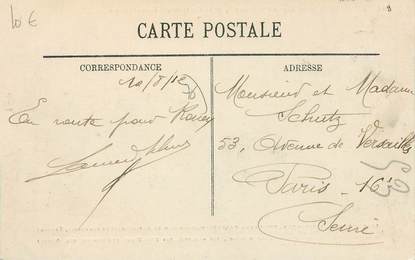 10 €
8
CARTE POSTALE
CORRESPONDANCE
ADRESSE
10/8/12
En route pour
Monsieur et Madame
Schutz
53, Avenue de Versailles
Paris - 16e
Seine